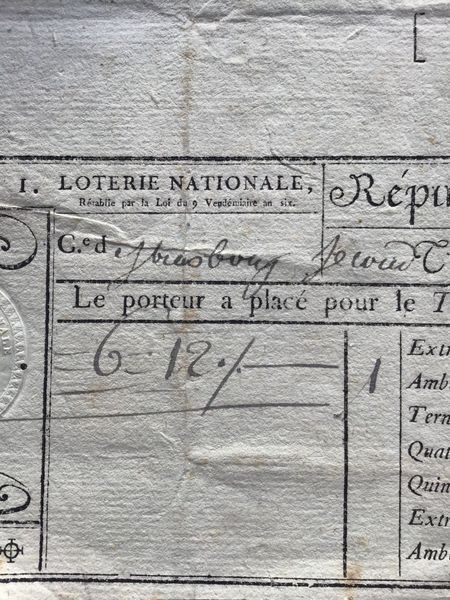 1. LOTERIE NATIONALE,
Rétablie par la Loi du 9 Vendémiaire an six.
Répu
C.e d Strasbourg Second T
Le porteur a placé pour le T
6 = 12 ./.
1
Extr
Amb
Tern
Quat
Quin
Extr
Amb
ALE